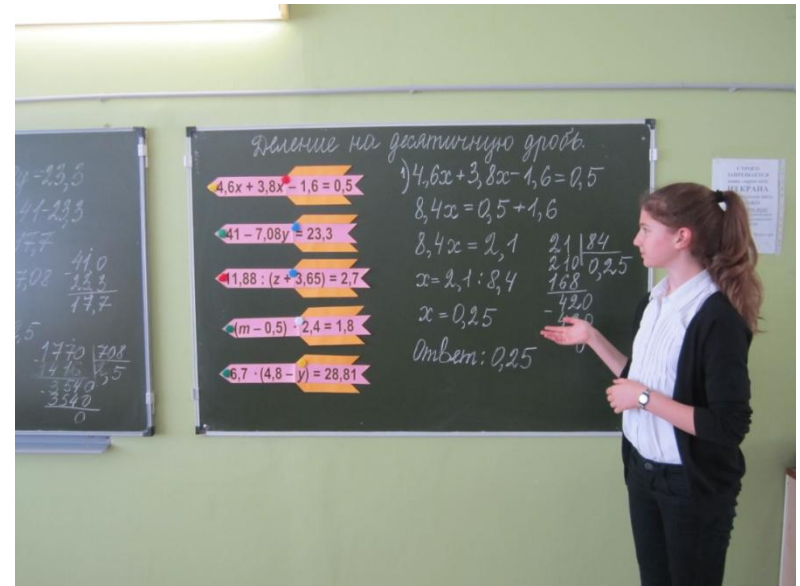 у - 23,3
41 - 23,3
17,7
7,08
41,0
23,3
17,7
1770 708
1416 2,5
3540
3540
0
Деление на десятичную дробь.
4,6x + 3,8x – 1,6 = 0,5
41 – 7,08y = 23,3
11,88 : (z + 3,65) = 2,7
(m – 0,5) · 2,4 = 1,8
6,7 · (4,8 – y) = 28,81
1) 4,6x + 3,8x - 1,6 = 0,5
8,4x = 0,5 + 1,6
8,4x = 2,1
x = 2,1 : 8,4
x = 0,25
Ответ: 0,25
21 84
210 0,25
168
- 420
0
СТРОГО
ЗАПРЕЩАЕТСЯ
ИЗ КРАНА